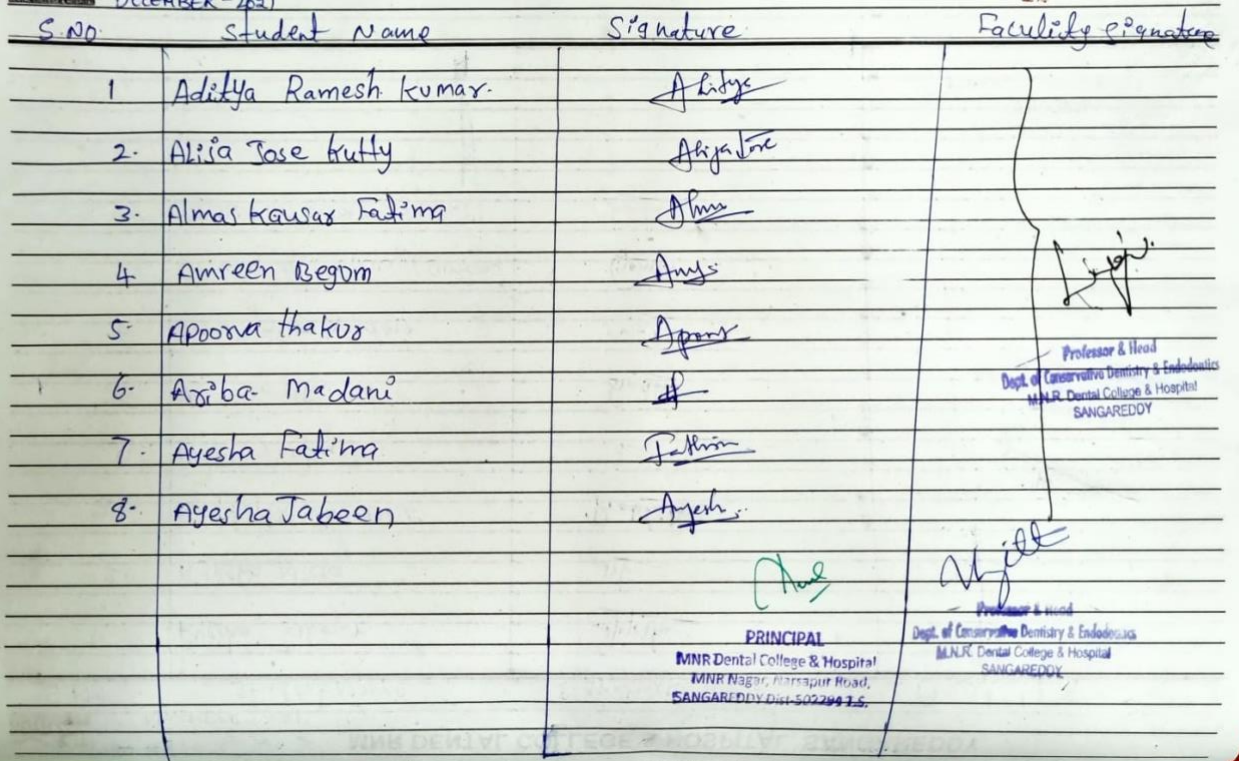 DECEMBER - 2021
S.NO. Student Name Signature Faculity Signature
1 Aditya Ramesh Kumar. Aditya
2. Alija Jose Kutty Alija Jose
3. Almas Kausar Fatima
4 Amreen Begum
5 Apoorva thakur Apoor
6. Ariba Madani
7. Ayesha Fatima Fathim
8. Ayesha Jabeen Ayesh
Professor & Head
Dept. of Conservative Dentistry & Endodontics
M.N.R. Dental College & Hospital
SANGAREDDY
PRINCIPAL
MNR Dental College & Hospital
MNR Nagar, Narsapur Road,
SANGAREDDY Dist-502294 T.S.
Professor & Head
Dept. of Conservative Dentistry & Endodontics
M.N.R. Dental College & Hospital
SANGAREDDY
MNR DENTAL COLLEGE & HOSPITAL, SANGAREDDY